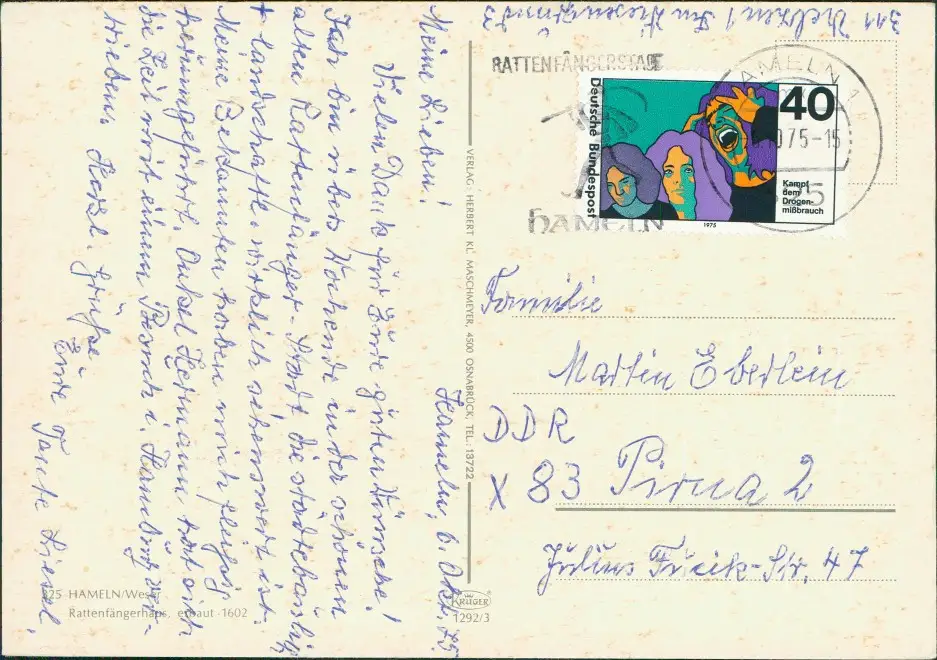 Hameln, 6. Okt. 75.
Meine Lieben!
Vielen Dank für Eure guten Wünsche!
Fast bin übers Wochenende in der schönen
alten Rattenfänger Stadt, die städtebaulich
+ landschaftl. wirklich sehenswert ist.
Meine Bekannten haben mich fleißig
herumgeführt. Onkel Hermann hat sich
die Zeit mit einem Besuch i. Hamburg ver-
trieben.
Herzl. Grüße
Eure Tante Liesel.
325 HAMELN/Weser
Rattenfängerhaus, erbaut 1602
VERLAG: HERBERT KL. MASCHMEYER, 4500 OSNABRÜCK, TEL.: 13722
KRÜGER
1292/3
311 Uelzen 1 Im Wiesengrund 3
RATTENFÄNGERSTADT
HAMELN
HAMELN 1
10.75-15
Deutsche Bundespost
40
Kampf
dem
Drogen-
mißbrauch
1975
Familie
Martin Eberlein
DDR
X 83 Pirna 2
Julius Fucik-Str. 47